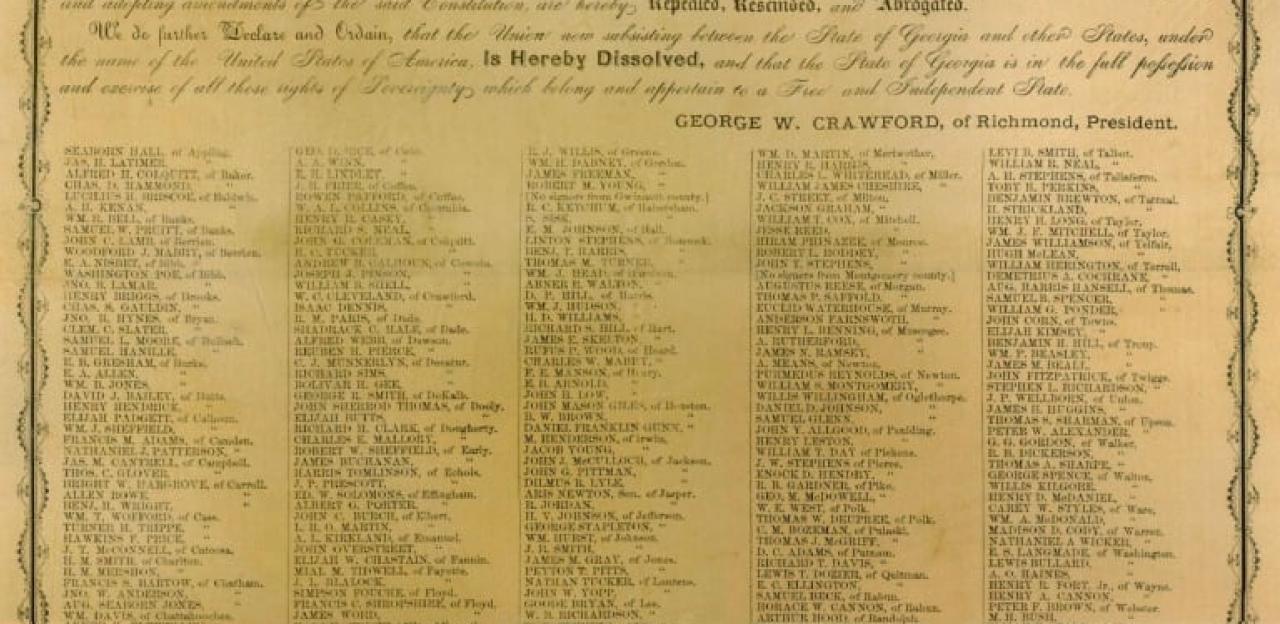 and adopting amendments of the said Constitution, are hereby Repealed, Rescinded, and Abrogated.
We do further Declare and Ordain, that the Union now subsisting between the State of Georgia and other States, under
the name of the United States of America, Is Hereby Dissolved, and that the State of Georgia is in the full possession
and exercise of all those rights of Sovereignty which belong and appertain to a Free and Independent State.
GEORGE W. CRAWFORD, of Richmond, President.
SEABORN HALL, of Appling.
JAS. H. LATIMER, "
ALFRED H. COLQUITT, of Baker.
CHAS. D. HAMMOND, "
LUCILIUS H. BRISCOE, of Baldwin.
A. H. KENAN, "
WM. R. BELL, of Banks.
SAMUEL W. PRUITT, of Banks.
JOHN C. LAMB, of Berrien.
WOODFORD J. MABRY, of Berrien.
E. A. NISBET, of Bibb.
WASHINGTON POE, of Bibb.
JNO. B. LAMAR, "
HENRY BRIGGS, of Brooks.
CHAS. S. GAULDIN, "
JNO. R. HYNES, of Bryan.
CLEM. C. SLATER, "
SAMUEL L. MOORE, of Bulloch.
SAMUEL HANILLE, "
E. B. GRESHAM, of Burke.
E. A. ALLEN, "
WM. B. JONES, "
DAVID J. BAILEY, of Butts.
HENRY HENDRICK, "
ELIJAH PADGETT, of Calhoun.
WM. J. SHEFFIELD, "
FRANCIS M. ADAMS, of Camden.
NATHANIEL J. PATTERSON, "
JAS. M. CANTRELL, of Campbell.
THOS. C. GLOVER, "
BRIGHT W. HARGROVE, of Carroll.
ALLEN ROWE, "
BENJ. H. WRIGHT, "
WM. T. WOFFORD, of Cass.
TURNER H. TRIPPE, "
HAWKINS F. PRICE, "
J. T. McCONNELL, of Catoosa.
H. M. SMITH, of Charlton.
H. M. MERSHON, "
FRANCIS S. BARTOW, of Chatham.
JNO. W. ANDERSON, "
AUG. SEABORN JONES, "
WM. DAVIS, of Chattahoochee.
GEO. D. RICE, of Cobb.
A. A. WINN, "
E. H. LINDLEY, "
J. H. FRIER, of Coffee.
ROWEN PAFFORD, of Coffee.
W. A. L. COLLINS, of Columbia.
HENRY R. CASEY, "
RICHARD S. NEAL, "
JOHN G. COLEMAN, of Colquitt.
H. C. TUCKER, "
ANDREW B. CALHOUN, of Coweta.
JOSEPH J. PINSON, "
WILLIAM B. SHELL, "
W. C. CLEVELAND, of Crawford.
ISAAC DENNIS, "
R. M. PARIS, of Dade.
SHADRACK C. HALE, of Dade.
ALFRED WEBB, of Dawson.
REUBEN H. PIERCE, "
C. J. MUNNERLYN, of Decatur.
RICHARD SIMS, "
BOLIVAR H. GEE, "
GEORGE R. SMITH, of DeKalb.
JOHN SHEROD THOMAS, of Dooly.
ELIJAH BUTTS, "
RICHARD H. CLARK, of Dougherty.
CHARLES E. MALLORY, "
ROBERT W. SHEFFIELD, of Early.
JAMES BUCHANAN, "
HARRIS TOMLINSON, of Echols.
J. P. PRESCOTT, "
ED. W. SOLOMONS, of Effingham.
ALBERT G. PORTER, "
JOHN C. BURCH, of Elbert.
L. H. O. MARTIN, "
A. L. KIRKLAND, of Emanuel.
JOHN OVERSTREET, "
ELIJAH W. CHASTAIN, of Fannin.
MIAL M. THOWELL, of Fayette.
J. L. BLALOCK, "
SIMPSON FOUCHE, of Floyd.
FRANCIS C. SHROPSHIRE, of Floyd.
JAMES WORD, "
R. J. WILLIS, of Greene.
WM. H. DABNEY, of Gordon.
JAMES FREEMAN, "
ROBERT M. YOUNG, "
[No signers from Gwinnett county.]
R. C. KETCHUM, of Habersham.
S. SISK, "
E. M. JOHNSON, of Hall.
LINTON STEPHENS, of Hancock.
BENJ. T. HARRIS, "
THOMAS M. TURNER, "
WM. J. HEAD, of Haralson.
ABNER R. WALTON, "
D. P. HILL, of Harris.
WM. J. HUDSON, "
H. D. WILLIAMS, "
RICHARD S. HILL, of Hart.
JAMES E. SKELTON, "
RUFUS P. WOOD, of Heard.
CHARLES W. MABRY, "
F. E. MANSON, of Henry.
E. B. ARNOLD, "
JOHN B. LOW, "
JOHN MASON GILES, of Houston.
B. W. BROWN, "
DANIEL FRANKLIN GUNN, "
M. HENDERSON, of Irwin.
JACOB YOUNG, "
JOHN J. McCULLOCH, of Jackson.
JOHN G. PITTMAN, "
DILMUS R. LYLE, "
ARIS NEWTON, Sen. of Jasper.
R. JORDAN, "
H. V. JOHNSON, of Jefferson.
GEORGE STAPLETON, "
WM. HURST, of Johnson.
J. R. SMITH, "
JAMES M. GRAY, of Jones.
PEYTON T. PITTS, "
NATHAN TUCKER, of Laurens.
JOHN W. YOPP, "
GOODE BRYAN, of Lee.
W. B. RICHARDSON, "
WM. D. MARTIN, of Meriwether.
HENRY R. HARRIS, "
CHARLES L. WHITEHEAD, of Miller.
WILLIAM JAMES CHESHIRE, "
J. C. STREET, of Milton.
JACKSON GRAHAM, "
WILLIAM T. COX, of Mitchell.
JESSE REED, "
HIRAM PHINAZEE, of Monroe.
ROBERT L. RODDEY, "
JOHN T. STEPHENS, "
[No signers from Montgomery county.]
AUGUSTUS REESE, of Morgan.
THOMAS P. SAFFOLD, "
EUCLID WATERHOUSE, of Murray.
ANDERSON FARNSWORTH, "
HENRY L. BENNING, of Muscogee.
A. RUTHERFORD, "
JAMES N. RAMSEY, "
A. MEANS, of Newton.
PURMEDUS REYNOLDS, of Newton.
WILLIAM S. MONTGOMERY, "
WILLIS WILLINGHAM, of Oglethorpe.
DANIEL D. JOHNSON, "
SAMUEL GLENN, "
JOHN Y. ALLGOOD, of Paulding.
HENRY LESTON, "
WILLIAM T. DAY of Pickens.
J. W. STEPHENS of Pierce.
ENOCK D. HENDRY, "
R. B. GARDNER, of Pike.
GEO. M. McDOWELL, "
W. E. WEST, of Polk.
THOMAS W. DEUPREE, of Polk.
C. M. BOZEMAN, of Pulaski.
THOMAS J. McGRIFF, "
D. C. ADAMS, of Putnam.
RICHARD T. DAVIS, "
LEWIS T. DOZIER, of Quitman.
E. C. ELLINGTON, "
SAMUEL BECK, of Rabun.
HORACE W. CANNON, of Rabun.
ARTHUR HOOD, of Randolph.
LEVI B. SMITH, of Talbot.
WILLIAM R. NEAL, "
A. H. STEPHENS, of Taliaferro.
TOBY B. PERKINS, "
BENJAMIN BREWTON, of Tattnal.
H. STRICKLAND, "
HENRY H. LONG, of Taylor.
WM. J. F. MITCHELL, of Taylor.
JAMES WILLIAMSON, of Telfair.
HUGH McLEAN, "
WILLIAM HERINGTON, of Terrell.
DEMETRIUS A. COCHRANE, "
AUG. HARRIS HANSELL, of Thomas.
SAMUEL B. SPENCER, "
WILLIAM G. PONDER, "
JOHN CORN, of Towns.
ELIJAH KIMSEY, "
BENJAMIN H. HILL, of Troup.
WM. P. BEASLEY, "
JAMES M. BEALL, "
JOHN FITZPATRICK, of Twiggs.
STEPHEN L. RICHARDSON, "
J. P. WELLBORN, of Union.
JAMES H. HUGGINS, "
THOMAS S. SHARMAN, of Upson.
PETER W. ALEXANDER, "
G. G. GORDON, of Walker.
R. B. DICKERSON, "
THOMAS A. SHARPE, "
GEORGE SPENCE, of Walton.
WILLIS KILGORE, "
HENRY D. McDANIEL, "
CAREY W. STYLES, of Ware,
WM. A. McDONALD, "
MADISON D. CODY, of Warren.
NATHANIEL A WICKER, "
E. S. LANGMADE, of Washington.
LEWIS BULLARD, "
A. C. HAINES, "
HENRY R. FORT, Jr., of Wayne.
HENRY A. CANNON, "
PETER F. BROWN, of Webster.
M. H. BUSH, "